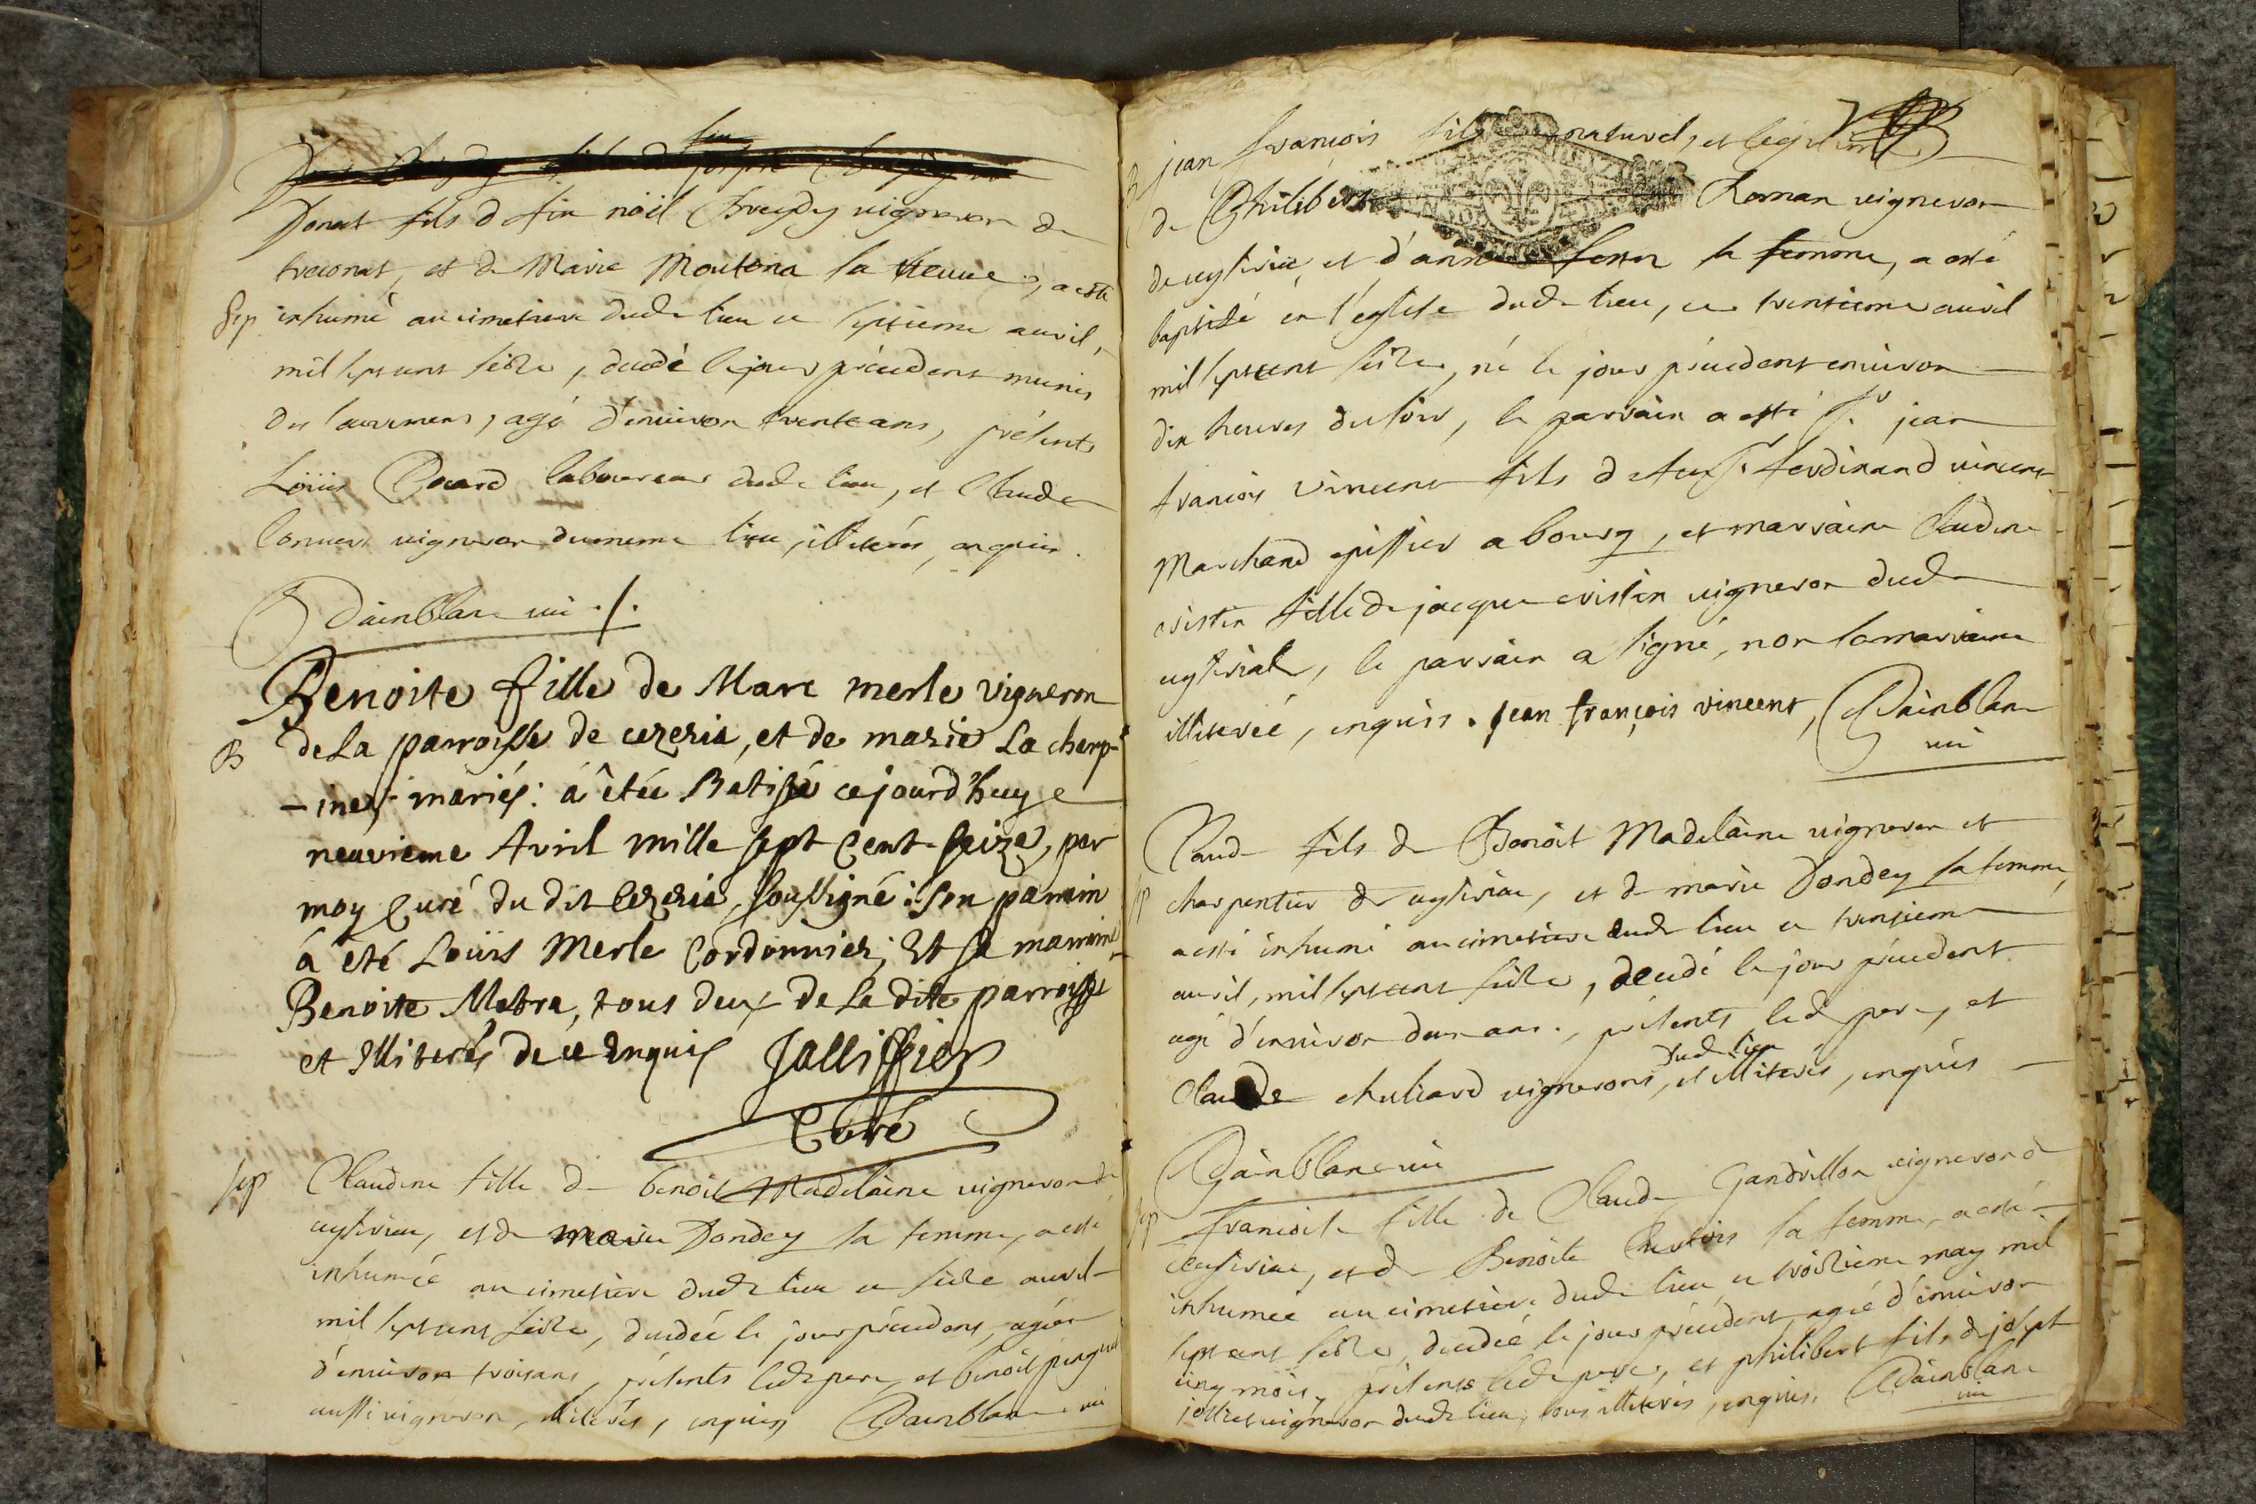 Donat fils de feu noël Chveydy vigneron de
treconat, et de Marie Moutona sa veuve, a esté
sep inhumé au cimetiere dud. lieu ce septieme avril,
mil sept cent seize, decedé le jour précedent munis
des sacremens, agé d'environ trente ans, présents
Loüis laboureur dud. lieu, et Claude
vigneron du meme lieu, illiterés, enquis.
Dainblane vic ./.
Benoite fille de Marc merle vigneron
B de La parroisse de cezeria, et de marie La charp-
-ine, mariés: á êtée Batisée cejourd'huy
neuvieme Avril mille sept Cent-seize, par
moy Curé du dit Cezeria, soussigné: son parrin
á été Loüis Merle Cordonnier; Et sa marrine
Benoite Mabra, tous deux de La dite parroisse
et Illiterés de ce Enquis Jalliffier
Curé
sep Claudine fille de benoit Madelaine vigneron de
ceyseriau, et de marie Dondey sa femme, a esté
inhumée au cimetiere dud. lieu ce seize avril
mil sept cent seize, decedée le jour précedent, agée
d'environ trois ans, présents led. pere, et benoit
aussi vigneron, illiterés, enquis Dainblane vic
B jean françois fils naturel, et legitime
de Philibert Roman vigneron
de ceyseria, et d'anne sa femme, a esté
baptisé en l'eglise dud. lieu, ce trentieme avril
mil sept cent seize, né le jour précedent environ
dix heures du soir, le parrain a esté Sr. jean
francois vincent fils de feu Sr. ferdinand vincent
Marchand epissier a bourg, et marraine Claudine
cristin fille de jacque cristin vigneron dud.
ceyseriat, le parrain a signé, non la marraine
illiterée, enquis. Jean françois vincent, Dainblane
vic
Claude fils de Benoit Madelaine vigneron et
sep charpentier de ceyseriau, et de marie Dondey sa femme,
a esté inhumé au cimetiere dud. lieu ce trentieme
avril, mil sept cent seize, decedé le jour précedent
agé d'environ deux ans, présents led. pere, et
dud. lieu
Claude chuliard vignerons, et illiterés, enquis
Dainblane vic
sep francoise fille de Claude Gandrillon vigneron de
ceyseriau, et de Benoite sa femme, a esté
inhumée au cimetiere dud. lieu ce troisieme may mil
sept cent seize, decedée le jour précedent, agée d'environ
cinq mois, présents led. pere, et philibert fils de josept
vigneron dud. lieu, tous illiterés, enquis. Dainblane
vic